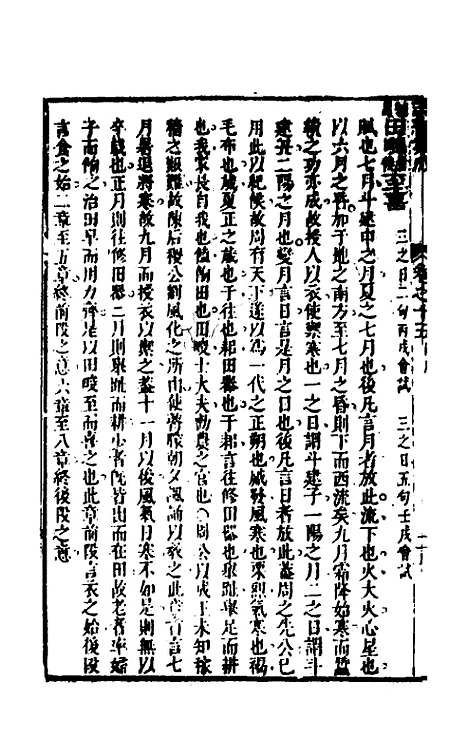 田畯至喜
三之日二句丙戌會試　三之日五句壬戌會試
賦也七月斗建申之月夏之七月也後凡言月者放此流下也火大火心星也
以六月之昏加于地之南方至七月之昏則下而西流矣九月霜降始寒而蠶
績之功亦成故授人以衣使禦寒也一之日謂斗建子一陽之月二之日謂斗
建丑二陽之月也變月言日言是月之日也後凡言日者放此蓋周之先公已
用此以紀候故周有天下遂以為一代之正朔也觱發風寒也栗烈氣寒也褐
毛布也歲夏正之歲也于往也耜田器也于耜言往修田器也舉趾舉足而耕
也我家長自我也饁餉田也田畯田大夫勸農之官也○周公以成王未知稼
穡之艱難故陳后稷公劉風化之所由使瞽矇朝夕諷誦以教之此章首言七
月暑退將寒故九月而授衣以禦之蓋十一月以後風氣日寒不如是則無以
卒歲也正月則往修田器二月則舉趾而耕少者既皆出而在田故老者率婦
子而餉之治田早而用力齊是以田畯至而喜之也此章前段言衣之始後段
言食之始二章至五章終前段之意六章至八章終後段之意